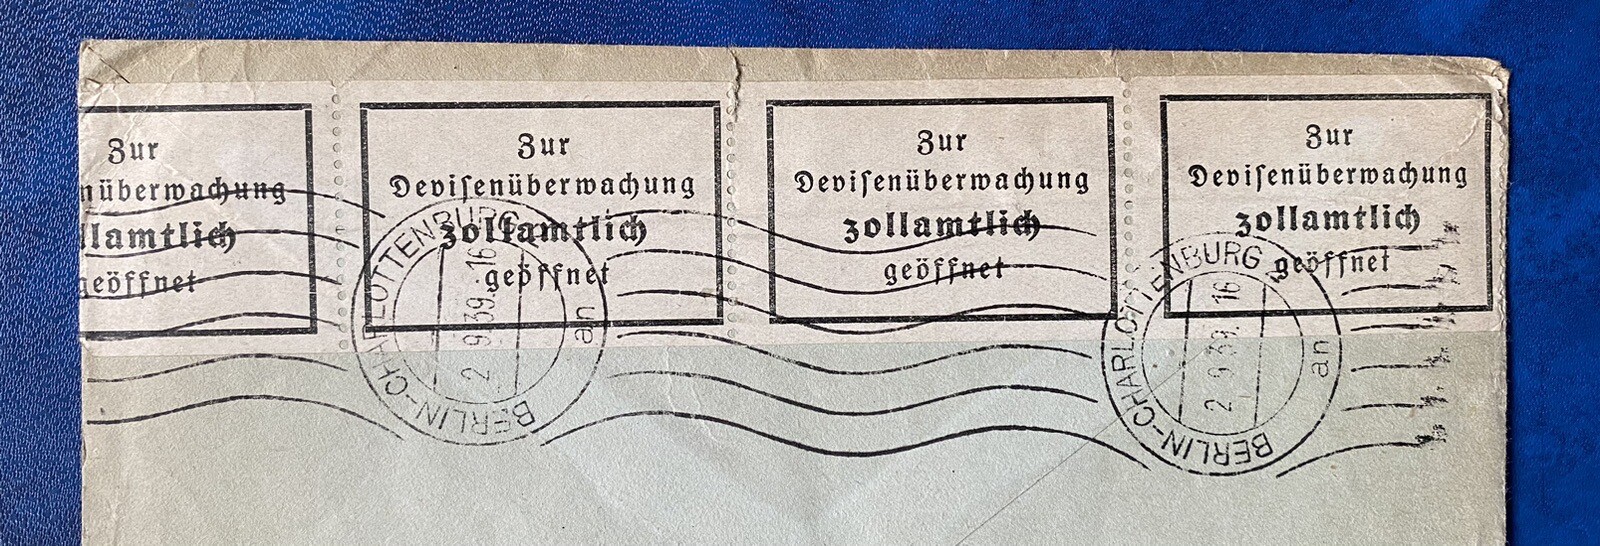 Zur
nüberwachung
llamtlich
geöffnet
Zur
Devisenüberwachung
zollamtlich
geöffnet
Zur
Devisenüberwachung
zollamtlich
geöffnet
Zur
Devisenüberwachung
zollamtlich
geöffnet
BERLIN-CHARLOTTENBURG 2
2.9.39. 16
an
BERLIN-CHARLOTTENBURG 2
2.9.39. 16
an